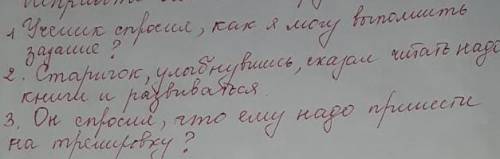 1 Ученик спросил, как я могу выполнить
задание?
2. Старичок, улыбнувшись, сказал читать надо
книги и развиваться.
3. Он спросил, что ему надо принести
на тренировку?